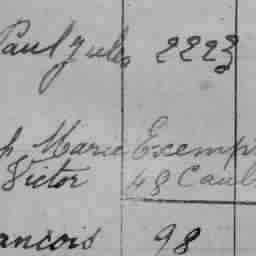 Paul Jules 2223
h Marie Exemp
Victor 48 Caul
ancois 98